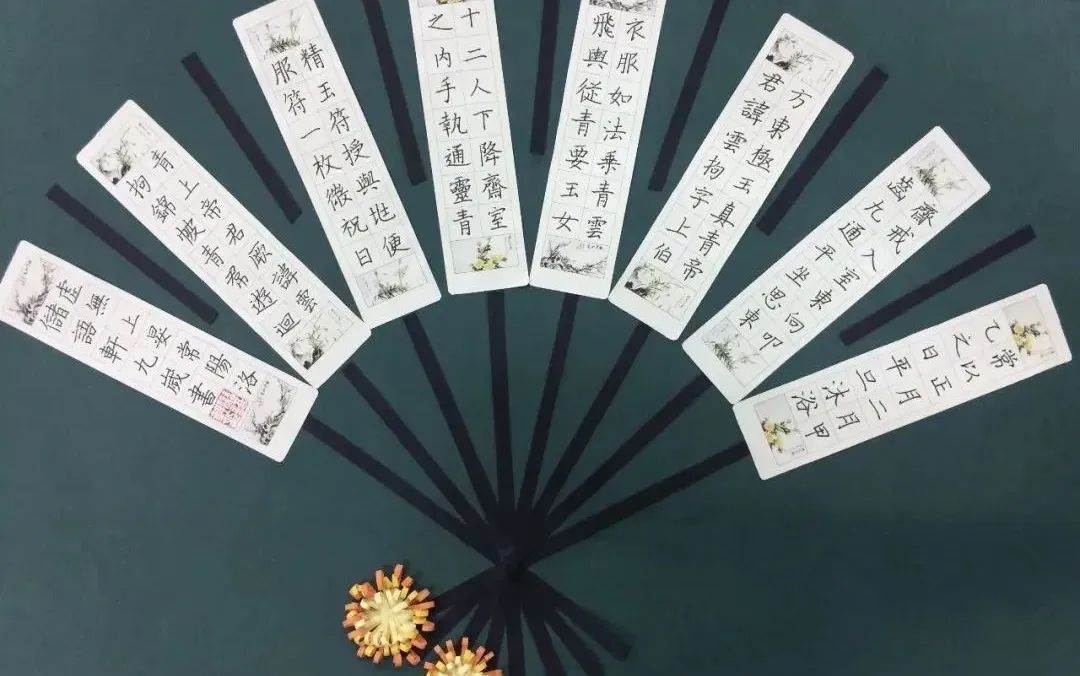 常以正月二月甲
乙之日平旦沐浴
齋戒入室東向叩
齒九通平坐思東
方東極玉真青帝
君諱雲拘字上伯
衣服如法乘青雲
飛輿從青要玉女
十二人下降齋室
之内手執通靈青
精玉符授與兆便
服符一枚微祝曰
青上帝君厥諱雲
拘錦帔青帬遊迴
虛無上晏常陽洛
儲語軒九歲書